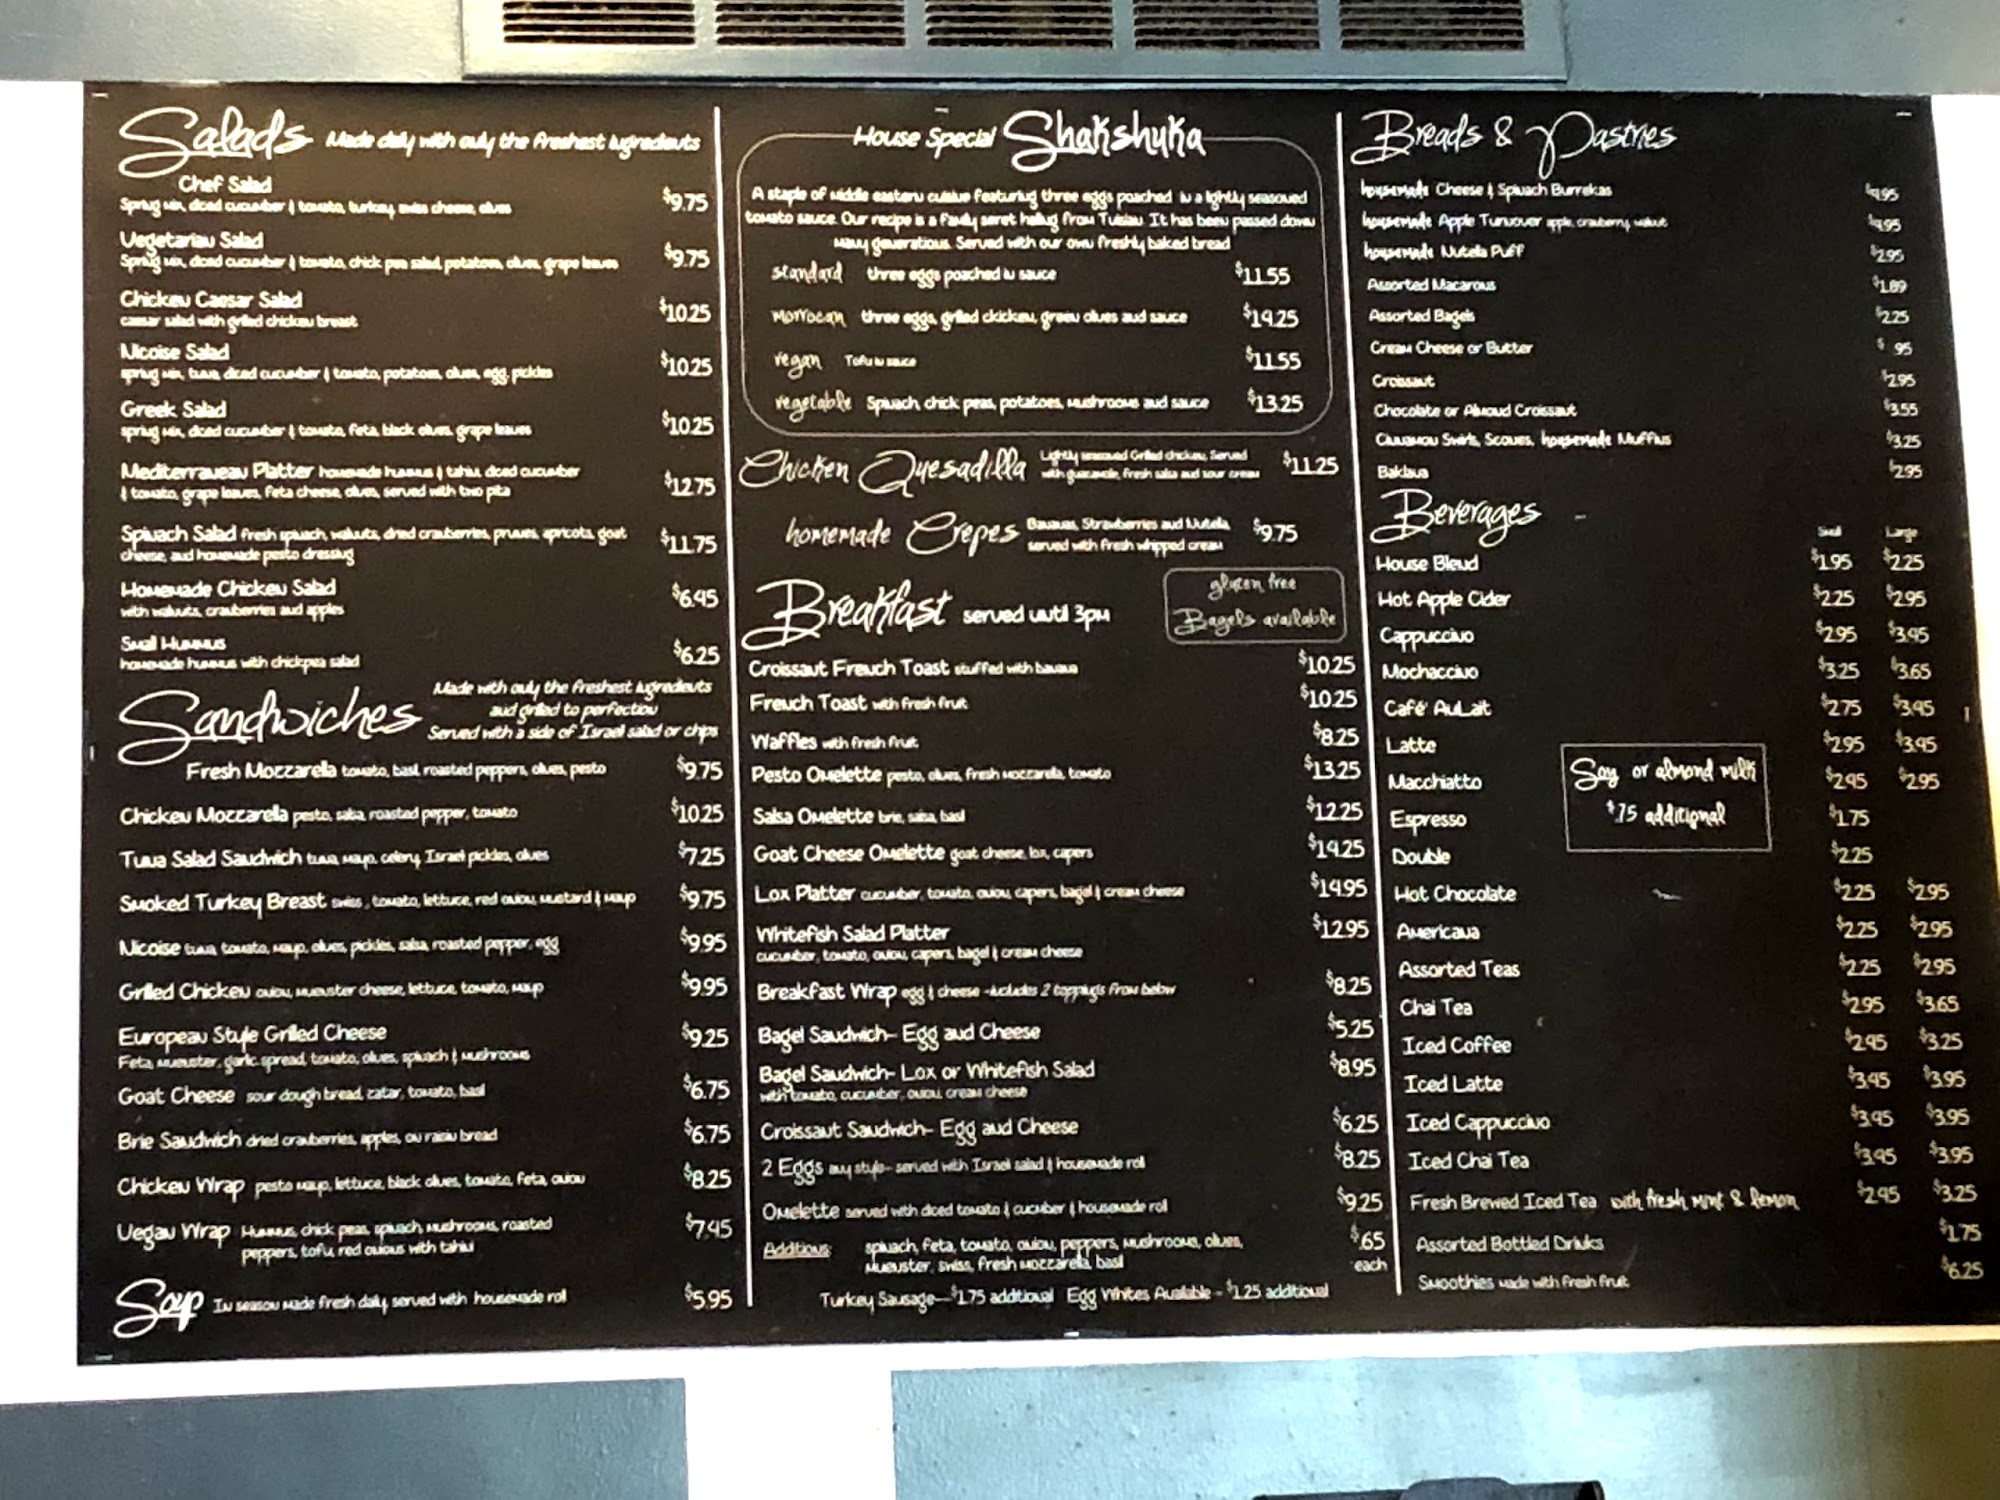 Salads Made daily with only the freshest ingredients
Chef Salad
Spring mix, diced cucumber & tomato, turkey, swiss cheese, olives $9.75
Vegetarian Salad
Spring mix, diced cucumber & tomato, chick pea salad, potatoes, olives, grape leaves $9.75
Chicken Caesar Salad
caesar salad with grilled chicken breast $10.25
Nicoise Salad
spring mix, tuna, diced cucumber & tomato, potatoes, olives, egg, pickles $10.25
Greek Salad
spring mix, diced cucumber & tomato, feta, black olives, grape leaves $10.25
Mediterranean Platter homemade hummus & tahini, diced cucumber
& tomato, grape leaves, feta cheese, olives, served with two pita $12.75
Spinach Salad fresh spinach, walnuts, dried cranberries, prunes, apricots, goat
cheese, and homemade pesto dressing $11.75
Homemade Chicken Salad
with walnuts, cranberries and apples $6.95
Small Hummus
homemade hummus with chickpea salad $6.25
Sandwiches
Made with only the freshest ingredients
and grilled to perfection
Served with a side of Israel salad or chips
Fresh Mozzarella tomato, basil, roasted peppers, olives, pesto $9.75
Chicken Mozzarella pesto, salsa, roasted pepper, tomato $10.25
Tuna Salad Sandwich tuna, mayo, celery, Israel pickles, olives $7.25
Smoked Turkey Breast swiss, tomato, lettuce, red onion, mustard & mayo $9.75
Nicoise tuna, tomato, mayo, olives, pickles, salsa, roasted pepper, egg $9.95
Grilled Chicken onion, muenster cheese, lettuce, tomato, mayo $9.95
European Style Grilled Cheese $9.25
Feta, muenster, garlic spread, tomato, olives, spinach & mushrooms
Goat Cheese sour dough bread, zatar, tomato, basil $6.75
Brie Sandwich dried cranberries, apples, on raisin bread $6.75
Chicken Wrap pesto mayo, lettuce, black olives, tomato, feta, onion $8.25
Vegan Wrap Hummus, chick peas, spinach, mushrooms, roasted $7.95
peppers, tofu, red onions with tahini
Soup In season made fresh daily, served with housemade roll $5.95
House Special Shakshuka
A staple of middle eastern cuisine featuring three eggs poached in a lightly seasoned
tomato sauce. Our recipe is a family secret hailing from Tunisia. It has been passed down
many generations. Served with our own freshly baked bread
standard three eggs poached in sauce $11.55
morrocan three eggs, grilled ckicken, green olives and sauce $14.25
vegan Tofu in sauce $11.55
vegetable Spinach, chick peas, potatoes, mushrooms and sauce $13.25
Chicken Quesadilla Lightly seasoned Grilled chicken, Served
with guacamole, fresh salsa and sour cream $11.25
homemade Crepes Bananas, Strawberries and Nutella
served with fresh whipped cream $9.75
Breakfast served until 3pm
gluten free
Bagels available
Croissant French Toast stuffed with banana $10.25
French Toast with fresh fruit $10.25
Waffles with fresh fruit $8.25
Pesto Omelette pesto, olives, fresh mozzarella, tomato $13.25
Salsa Omelette brie, salsa, basil $12.25
Goat Cheese Omelette goat cheese, lox, capers $14.25
Lox Platter cucumber, tomato, onion, capers, bagel & cream cheese $14.95
Whitefish Salad Platter $12.95
cucumber, tomato, onion, capers, bagel & cream cheese
Breakfast Wrap egg & cheese -includes 2 toppings from below $8.25
Bagel Sandwich- Egg and Cheese $5.25
Bagel Sandwich- Lox or Whitefish Salad $8.95
with tomato, cucumber, onion, cream cheese
Croissant Sandwich- Egg and Cheese $6.25
2 Eggs any style- served with Israel salad & housemade roll $8.25
Omelette served with diced tomato & cucumber & housemade roll $9.25
Additions: spinach, feta, tomato, onion, peppers, mushrooms, olives, $.65
muenster, swiss, fresh mozzarella, basil each
Turkey Sausage—$1.75 additional Egg Whites Available - $1.25 additional
Breads & Pastries
housemade Cheese & Spinach Burrekas $4.95
housemade Apple Turnover apple, cranberry, walnut $4.95
housemade Nutella Puff $2.95
Assorted Macarons $1.89
Assorted Bagels $2.25
Cream Cheese or Butter $ .95
Croissant $2.95
Chocolate or Almond Croissant $3.55
Cinnamon Swirls, Scones, housemade Muffins $3.25
Baklava $2.95
Beverages
Small Large
House Blend $1.95 $2.25
Hot Apple Cider $2.25 $2.95
Cappuccino $2.95 $3.45
Mochaccino $3.25 $3.65
Café AuLait $2.75 $3.45
Latte $2.95 $3.45
Macchiatto $2.45 $2.95
Espresso $1.75
Double $2.25
Soy or almond milk
$.75 additional
Hot Chocolate $2.25 $2.95
Americana $2.25 $2.95
Assorted Teas $2.25 $2.95
Chai Tea $2.95 $3.65
Iced Coffee $2.45 $3.25
Iced Latte $3.45 $3.95
Iced Cappuccino $3.45 $3.95
Iced Chai Tea $3.45 $3.95
Fresh Brewed Iced Tea with fresh mint & lemon $2.45 $3.25
Assorted Bottled Drinks $1.75
Smoothies made with fresh fruit $6.25